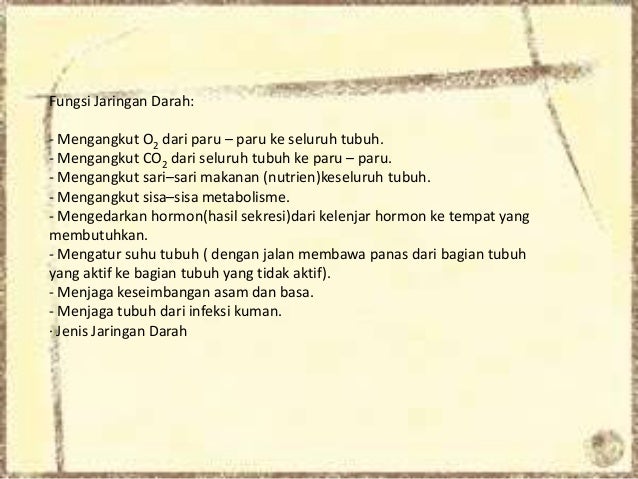 Fungsi Jaringan Darah:
- Mengangkut O2 dari paru – paru ke seluruh tubuh.
- Mengangkut CO2 dari seluruh tubuh ke paru – paru.
- Mengangkut sari–sari makanan (nutrien)keseluruh tubuh.
- Mengangkut sisa–sisa metabolisme.
- Mengedarkan hormon(hasil sekresi)dari kelenjar hormon ke tempat yang
membutuhkan.
- Mengatur suhu tubuh ( dengan jalan membawa panas dari bagian tubuh
yang aktif ke bagian tubuh yang tidak aktif).
- Menjaga keseimbangan asam dan basa.
- Menjaga tubuh dari infeksi kuman.
· Jenis Jaringan Darah